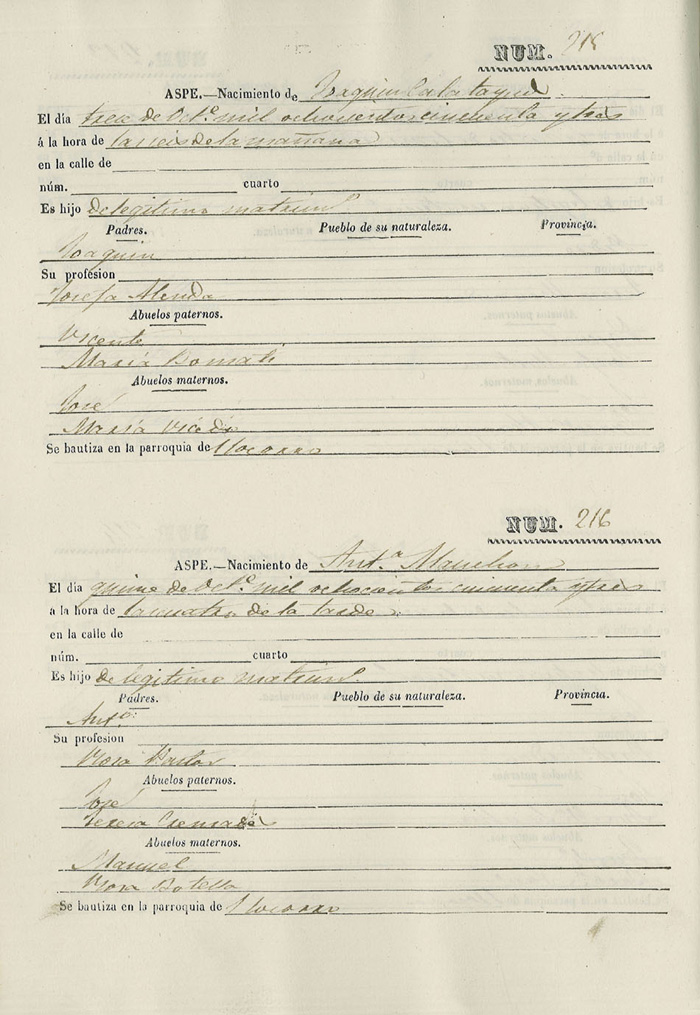 NUM. 215
ASPE.—Nacimiento de Joaquin Calatayud
El día trece de Oct.e mil ochocientos cincuenta y tres
á la hora de las seis de la mañana
en la calle de
núm. cuarto
Es hijo de legitimo matrim.o
Padres. Pueblo de su naturaleza. Provincia.
Joaquin
Su profesion
Josefa Alenda
Abuelos paternos.
Vicente
Maria
Abuelos maternos.
José
Maria Vicedo
Se bautiza en la parroquia de Socorro
NUM. 216
ASPE.—Nacimiento de Ant.a Manchon
El día quince de Oct.e mil ochocientos cincuenta y tres
á la hora de las cuatro de la tarde
en la calle de
núm. cuarto
Es hijo de legitimo matrim.o
Padres. Pueblo de su naturaleza. Provincia.
Ant.o
Su profesion
Rosa Pastor
Abuelos paternos.
José
Teresa
Abuelos maternos.
Manuel
Rosa Botella
Se bautiza en la parroquia de Socorro